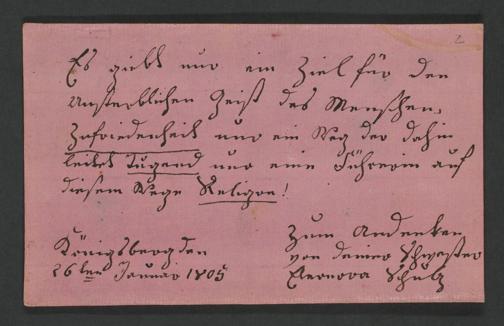 2
Es giebt nur ein Ziel für den
unsterblichen Geist des Menschen,
Zufriedenheit nur ein Weg der dahin
leitet Tugend nur eine Führerin auf
diesem Wege Religion!
Königsberg den
26ten Januar 1805
Zum Andenken
von deiner Schwester
Eleonora Schulz